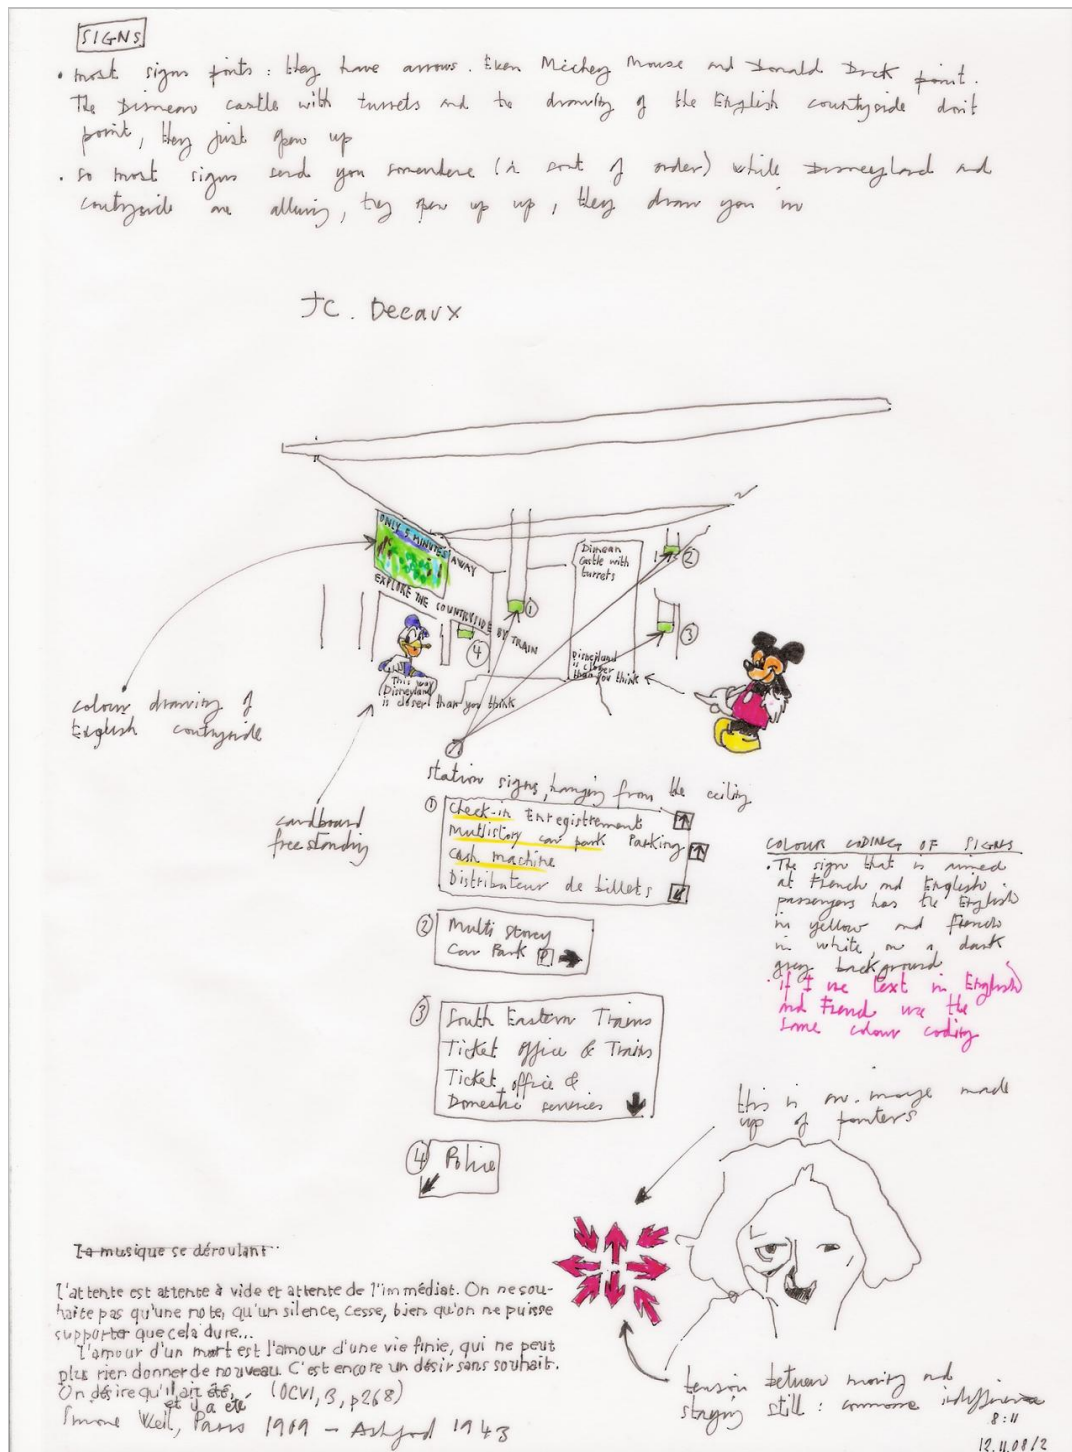 SIGNS
• most signs points : they have arrows. Even Mickey Mouse and Donald Duck point.
The Disnean castle with turrets and the drawing of the English countryside don't
point, they just open up
• so most signs send you somewhere (a sort of order) while Disneyland and
countryside are alluring, they open up up, they draw you in
JC. Decaux
ONLY 5 MINUTES AWAY
EXPLORE THE COUNTRYSIDE BY TRAIN
Disnean
Castle with
turrets
①
②
③
④
This way
Disneyland
is closer than you think
Disneyland
is closer
than you think
colour drawing of
English countryside
cardboard
free standing
station signs, hanging from the ceiling
① Check-in Enregistrement
Multistory car park Parking
Cash machine
Distributeur de billets
② Multi Storey
Car Park P
③ South Eastern Trains
Ticket office & Trains
Ticket office &
Domestic services
④ Police
COLOUR CODING OF SIGNS
• The sign that is aimed
at French and English
passengers has the English
in yellow and French
in white, on a dark
grey background
• if I use text in English
and French use the
same colour coding
this is an image made
up of pointers
tension between moving and
staying still :
8:11
12.11.08/2
La musique se déroulant
L'attente est attente à vide et attente de l'immédiat. On ne sou-
haite pas qu'une note, qu'un silence, cesse, bien qu'on ne puisse
supporter que cela dure...
L'amour d'un mort est l'amour d'une vie finie, qui ne peut
plus rien donner de nouveau. C'est encore un désir sans souhait.
On désire qu'il ait été, et il y a été (OCVI, 3, p268)
Simone Weil, Paris 1909 – Ashford 1943